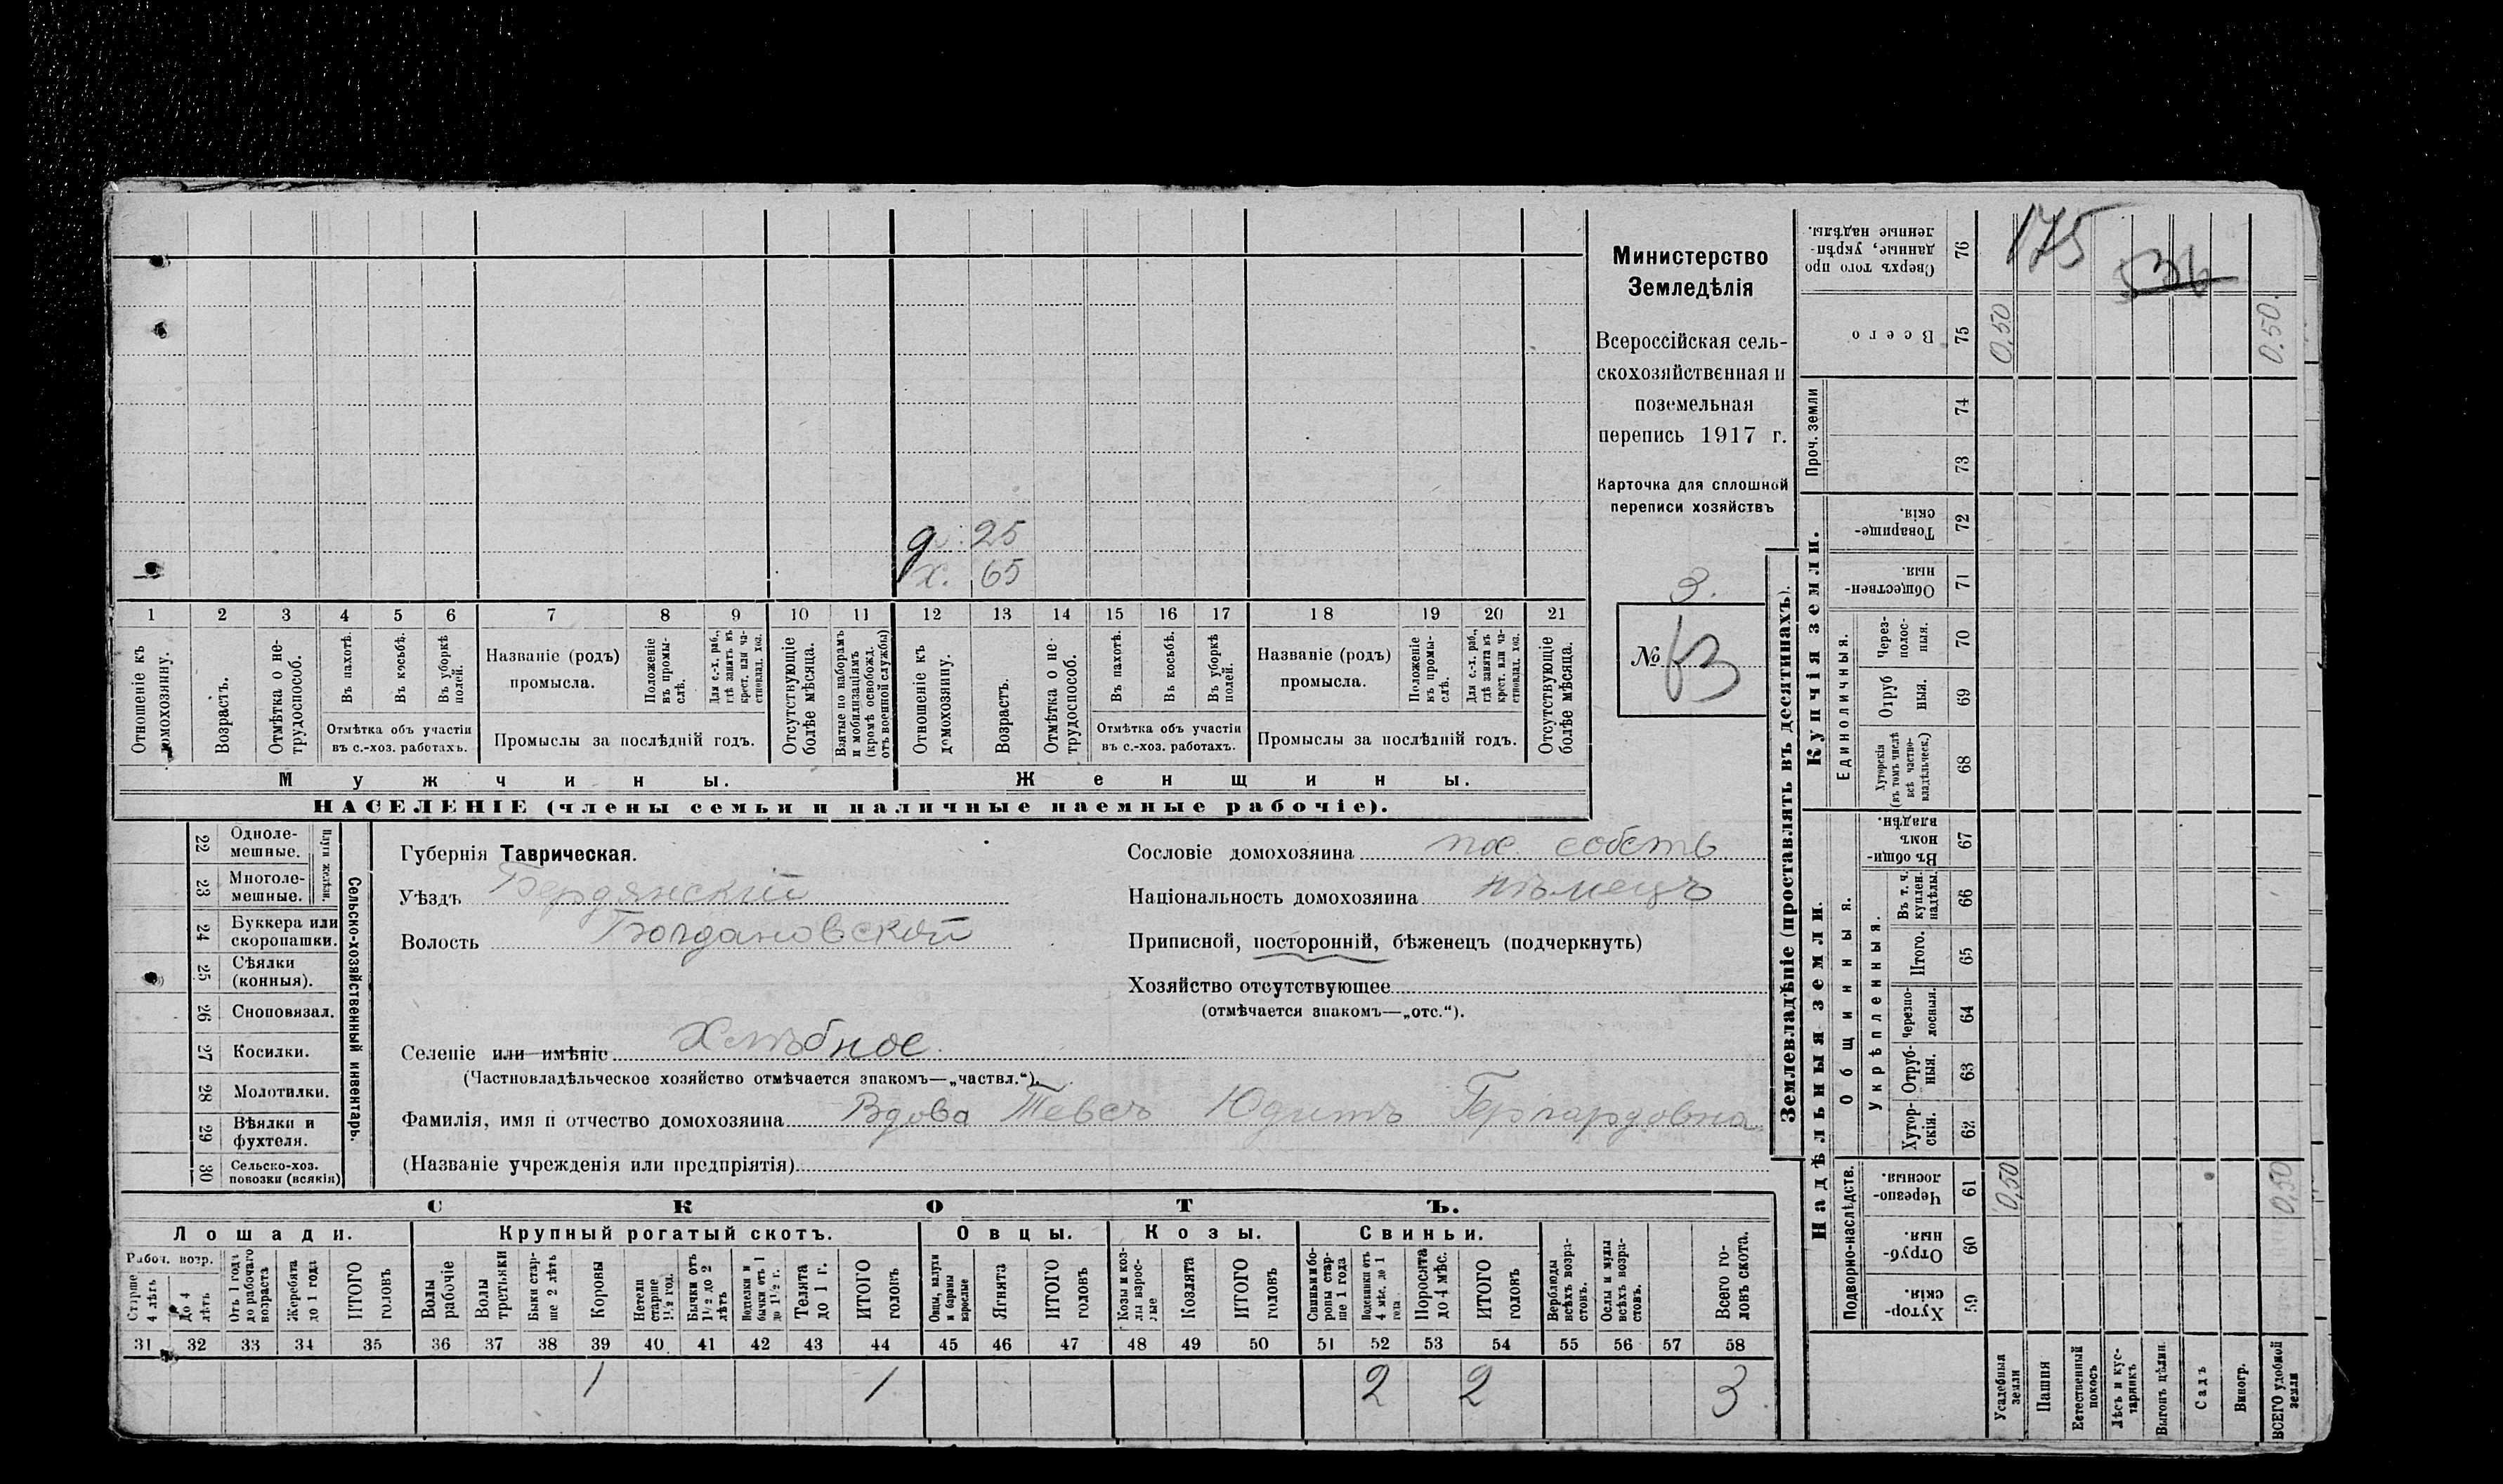 д. 25
х. 65
1 2 3 4 5 6 7 8 9 10 11 12 13 14 15 16 17 18 19 20 21
Отношеніе къ домохозяину.
Возрастъ.
Отмѣтка о не-
трудоспособ.
Въ пахотѣ.
Въ косьбѣ.
Въ уборкѣ
полей.
Отмѣтка объ участіи
въ с.-хоз. работахъ.
Названіе (родъ)
промысла.
Положеніе
въ промы-
слѣ.
Для с.-х. раб.,
гдѣ занятъ въ
крест. или ча-
стновлад. хоз.
Промыслы за послѣдній годъ.
Отсутствующіе
болѣе мѣсяца.
Взятые по наборамъ
и мобилизаціямъ
(кромѣ освобожд.
отъ военной службы)
Отношеніе къ
домохозяину.
Возрастъ.
Отмѣтка о не-
трудоспособ.
Въ пахотѣ.
Въ косьбѣ.
Въ уборкѣ
полей.
Отмѣтка объ участіи
въ с.-хоз. работахъ.
Названіе (родъ)
промысла.
Положеніе
въ промы-
слѣ.
Для с.-х. раб.,
гдѣ занятъ въ
крест. или ча-
стновлад. хоз.
Промыслы за послѣдній годъ.
Отсутствующіе
болѣе мѣсяца.
Мужчины.
Женщины.
НАСЕЛЕНІЕ (члены семьи и наличные наемные рабочіе).
Министерство
Земледѣлія
Всероссійская сель-
скохозяйственная и
поземельная
перепись 1917 г.
Карточка для сплошной
переписи хозяйствъ
3.
№
22 Одноле-
мешные.
23 Многоле-
мешные.
Плуги желѣзн.
24 Буккера или
скоропашки.
25 Сѣялки
(конныя).
26 Сноповязал.
27 Косилки.
28 Молотилки.
29 Вѣялки и
фухтеля.
30 Сельско-хоз.
повозки (всякія)
Сельско-хозяйственный инвентарь.
Губернія Таврическая.
Уѣздъ Бердянскій
Волость Богдановской
Селеніе или имѣніе Хлѣбное.
(Частновладѣльческое хозяйство отмѣчается знакомъ—„частвл.“).
Фамилія, имя и отчество домохозяина Вдова Тевсъ Юдитъ Гергардовна
(Названіе учрежденія или предпріятія)
Сословіе домохозяина пос. собств
Національность домохозяина нѣмецъ
Приписной, посторонній, бѣженецъ (подчеркнуть)
Хозяйство отсутствующее
(отмѣчается знакомъ—„отс.“).
СКОТЪ.
Лошади. Крупный рогатый скотъ. Овцы. Козы. Свиньи.
Рабоч. возр.
Старше
4 лѣтъ
До 4
лѣтъ
Отъ 1 года
до рабочаго
возраста
Жеребята
до 1 года
ИТОГО
головъ
Волы
рабочіе
Волы
третьяки
Быки стар-
ше 2 лѣтъ
Коровы
Нетели
старше
1½ год.
Бычки отъ
1½ до 2
лѣтъ
Подтелки и
бычки отъ 1
до 1½ г.
Телята
до 1 г.
ИТОГО
головъ
Овцы, валухи
и бараны
взрослые
Ягнята
ИТОГО
головъ
Козы и коз-
лы взрос-
лые
Козлята
ИТОГО
головъ
Свиньи и бо-
ровы стар-
ше 1 года
Подсвинки отъ
4 мѣс. до 1
года
Поросята
до 4 мѣс.
ИТОГО
головъ
Верблюды
всѣхъ возра-
стовъ.
Ослы и мулы
всѣхъ возра-
стовъ.
Всего го-
ловъ скота.
31 32 33 34 35 36 37 38 39 40 41 42 43 44 45 46 47 48 49 50 51 52 53 54 55 56 57 58
1 1 2 2 3
Землевладѣніе (проставлять въ десятинахъ).
Купчія земли.
Надѣльныя земли.
Проч. земли
Единоличныя.
Общинныя.
Укрѣпленныя.
Подворно-наслѣдств.
Сверхъ того про
данные, укрѣп-
ленные надѣлы.
76
175
Всего
75
0,50
0.50.
74
73
Товарище-
скія.
72
Обществен-
ныя.
71
Через-
полос-
ныя.
70
Отруб
ныя.
69
Хуторскія
(въ томъ числѣ
всѣ частно-
владѣльческ.)
68
Въ общи-
номъ
владѣн.
67
Въ т. ч.
куплен.
надѣлы.
66
Итого.
65
Черезпо-
лосныя.
64
Отруб-
ныя.
63
Хутор-
скія.
62
Черезпо-
лосныя.
61
0,50
0,50
Отруб-
ныя.
60
Хутор-
скія.
59
Усадебныя
земли
Пашня
Естественный
покосъ
Лѣсъ и кус-
тарникъ
Выгонъ цѣлин.
Садъ
Виногр.
ВСЕГО удобной
земли